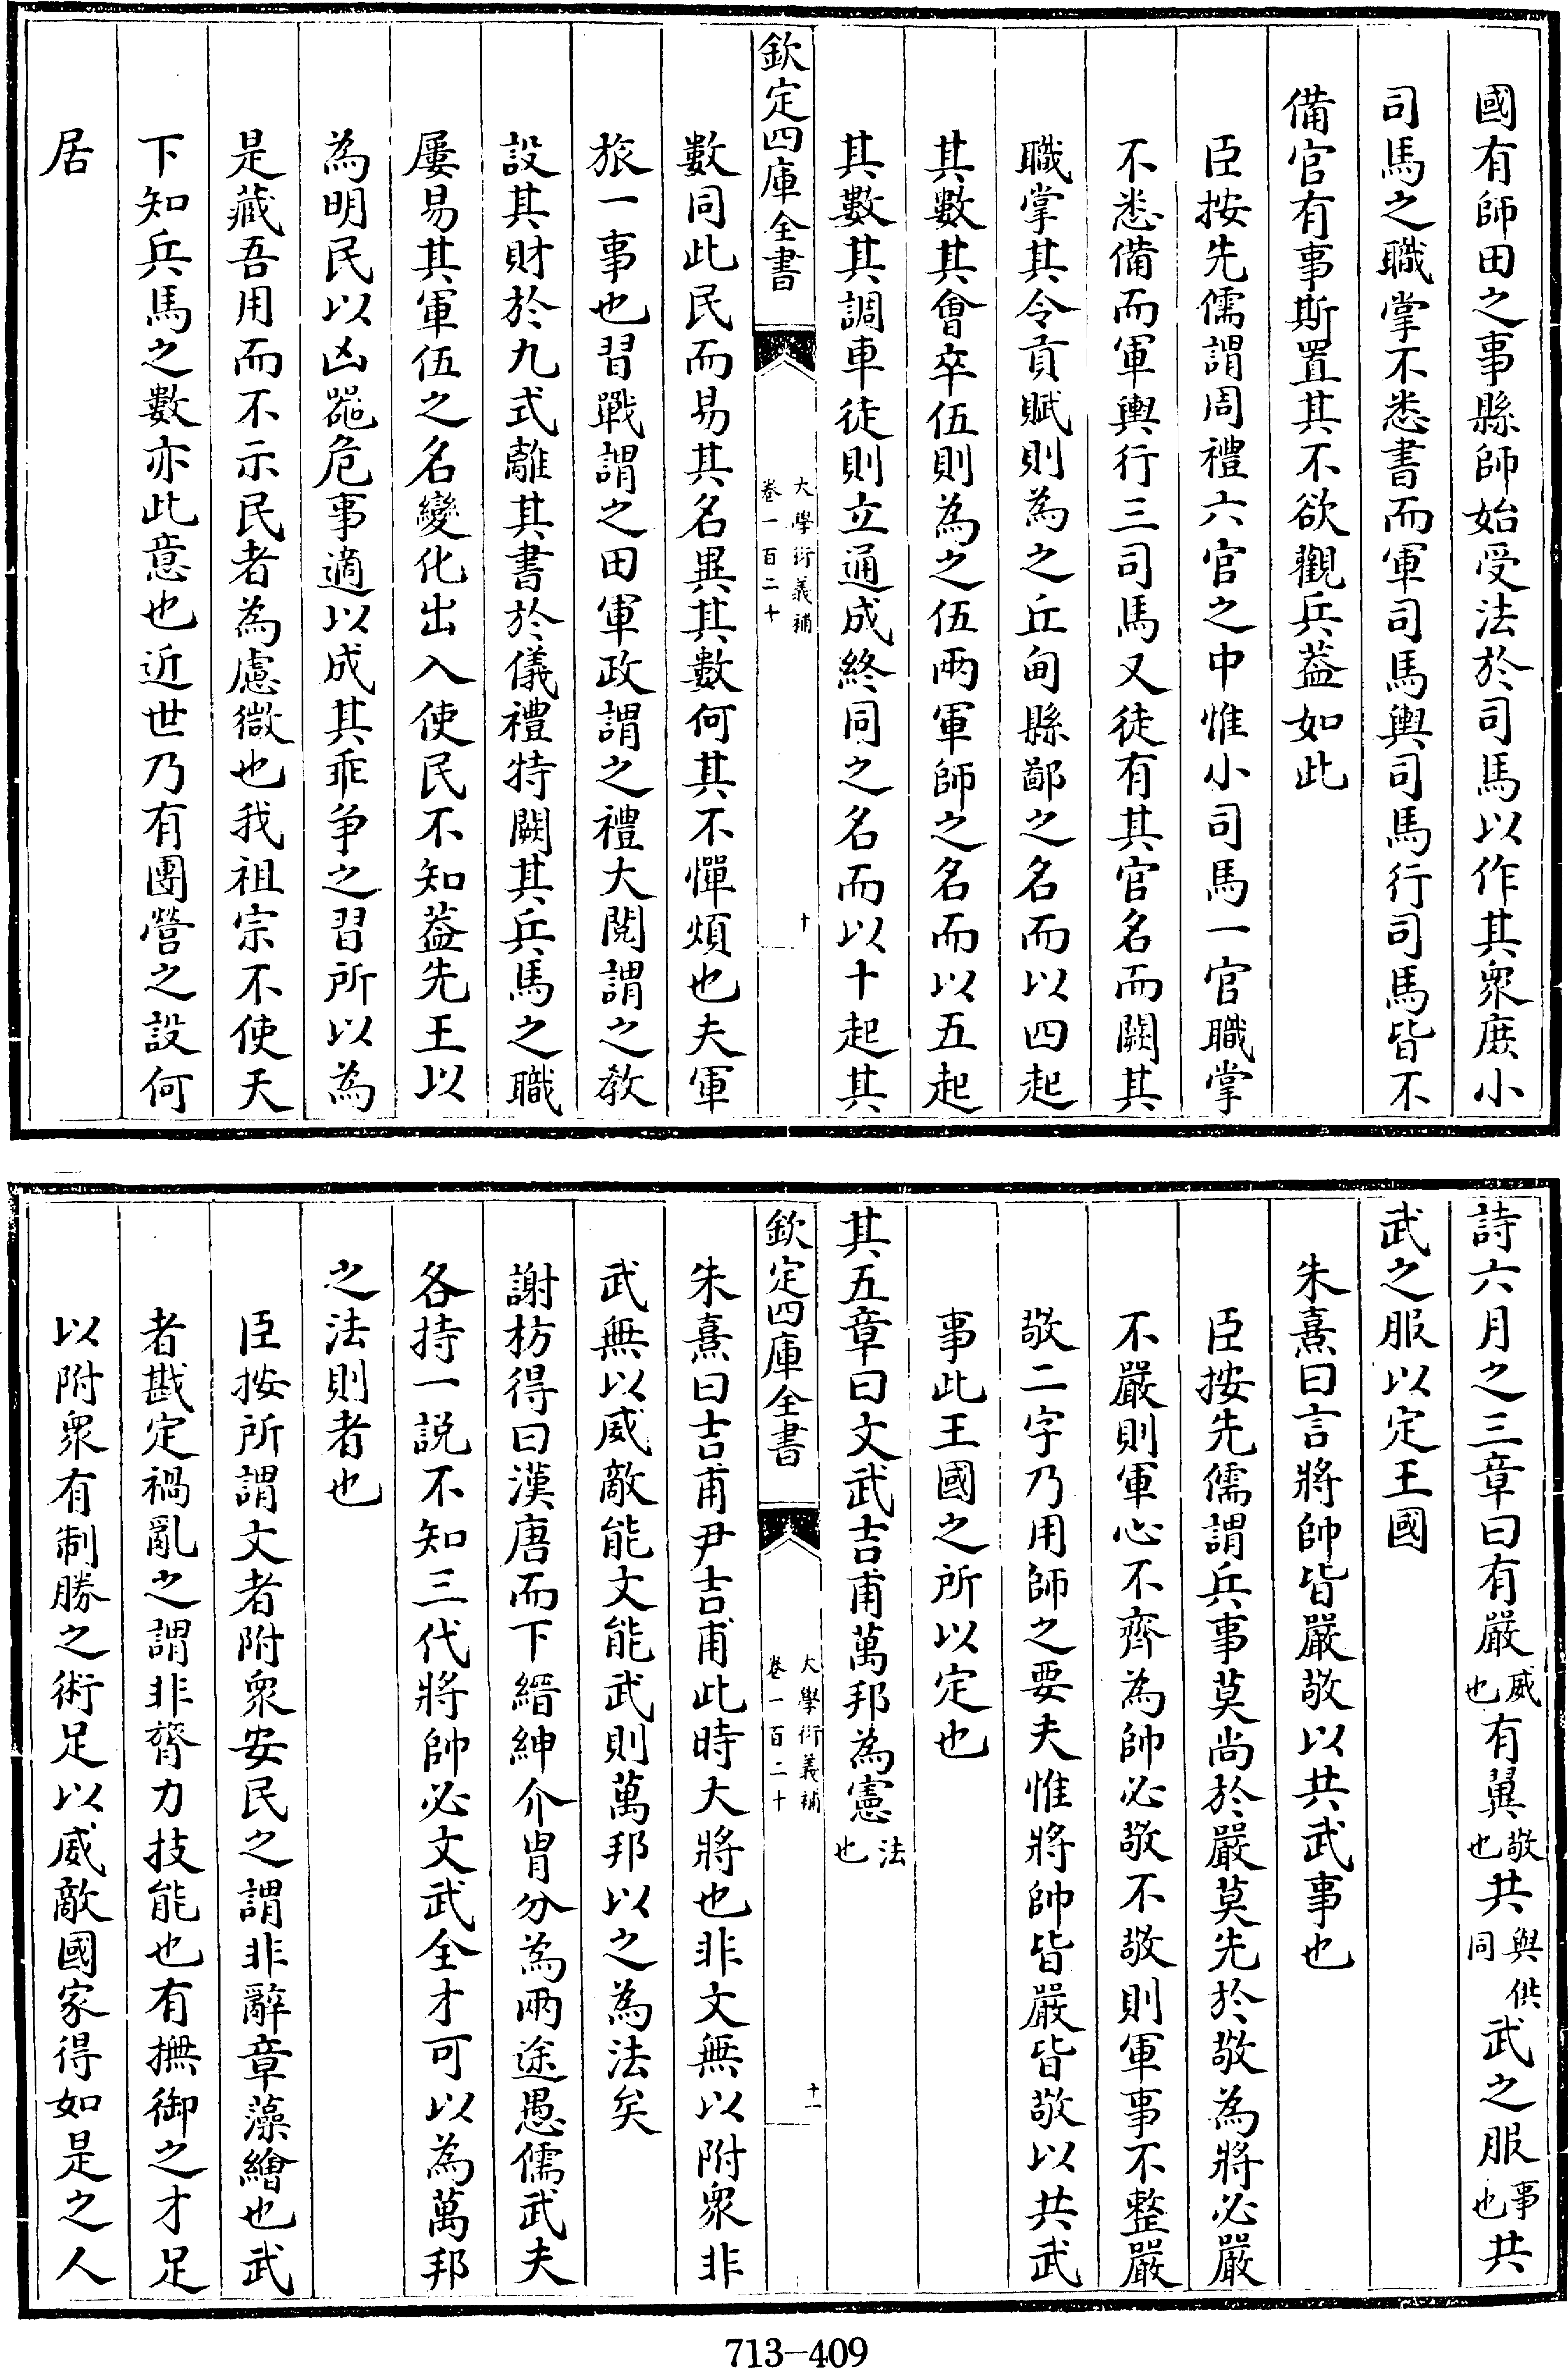 國有師田之事縣師始受法於司馬以作其衆庶小
司馬之職掌不悉書而軍司馬輿司馬行司馬皆不
備官有事斯置其不欲觀兵葢如此
臣按先儒謂周禮六官之中惟小司馬一官職掌
不悉備而軍輿行三司馬又徒有其官名而闕其
職掌其令貢賦則為之丘甸縣鄙之名而以四起
其數其會卒伍則為之伍兩軍師之名而以五起
其數其調車徒則立通成終同之名而以十起其
欽定四庫全書
大學衍義補
卷一百二十
十
數同此民而易其名異其數何其不憚煩也夫軍
旅一事也習戰謂之田軍政謂之禮大閱謂之教
設其財於九式離其書於儀禮特闕其兵馬之職
屢易其軍伍之名變化出入使民不知葢先王以
為明民以凶器危事適以成其乖争之習所以為
是藏吾用而不示民者為慮微也我祖宗不使天
下知兵馬之數亦此意也近世乃有團營之設何
居
詩六月之三章曰有嚴威也有翼敬也共與供同武之服事也共
武之服以定王國
朱熹曰言將帥皆嚴敬以共武事也
臣按先儒謂兵事莫尚於嚴莫先於敬為將必嚴
不嚴則軍心不齊為帥必敬不敬則軍事不整嚴
敬二字乃用師之要夫惟將帥皆嚴皆敬以共武
事此王國之所以定也
其五章曰文武吉甫萬邦為憲法也
欽定四庫全書
大學衍義補
卷一百二十
十一
朱熹曰吉甫尹吉甫此時大將也非文無以附衆非
武無以威敵能文能武則萬邦以之為法矣
謝枋得曰漢唐而下縉紳介胄分為兩途愚儒武夫
各持一説不知三代將帥必文武全才可以為萬邦
之法則者也
臣按所謂文者附衆安民之謂非辭章藻繪也武
者戡定禍亂之謂非膂力技能也有撫御之才足
以附衆有制勝之術足以威敵國家得如是之人
713-409